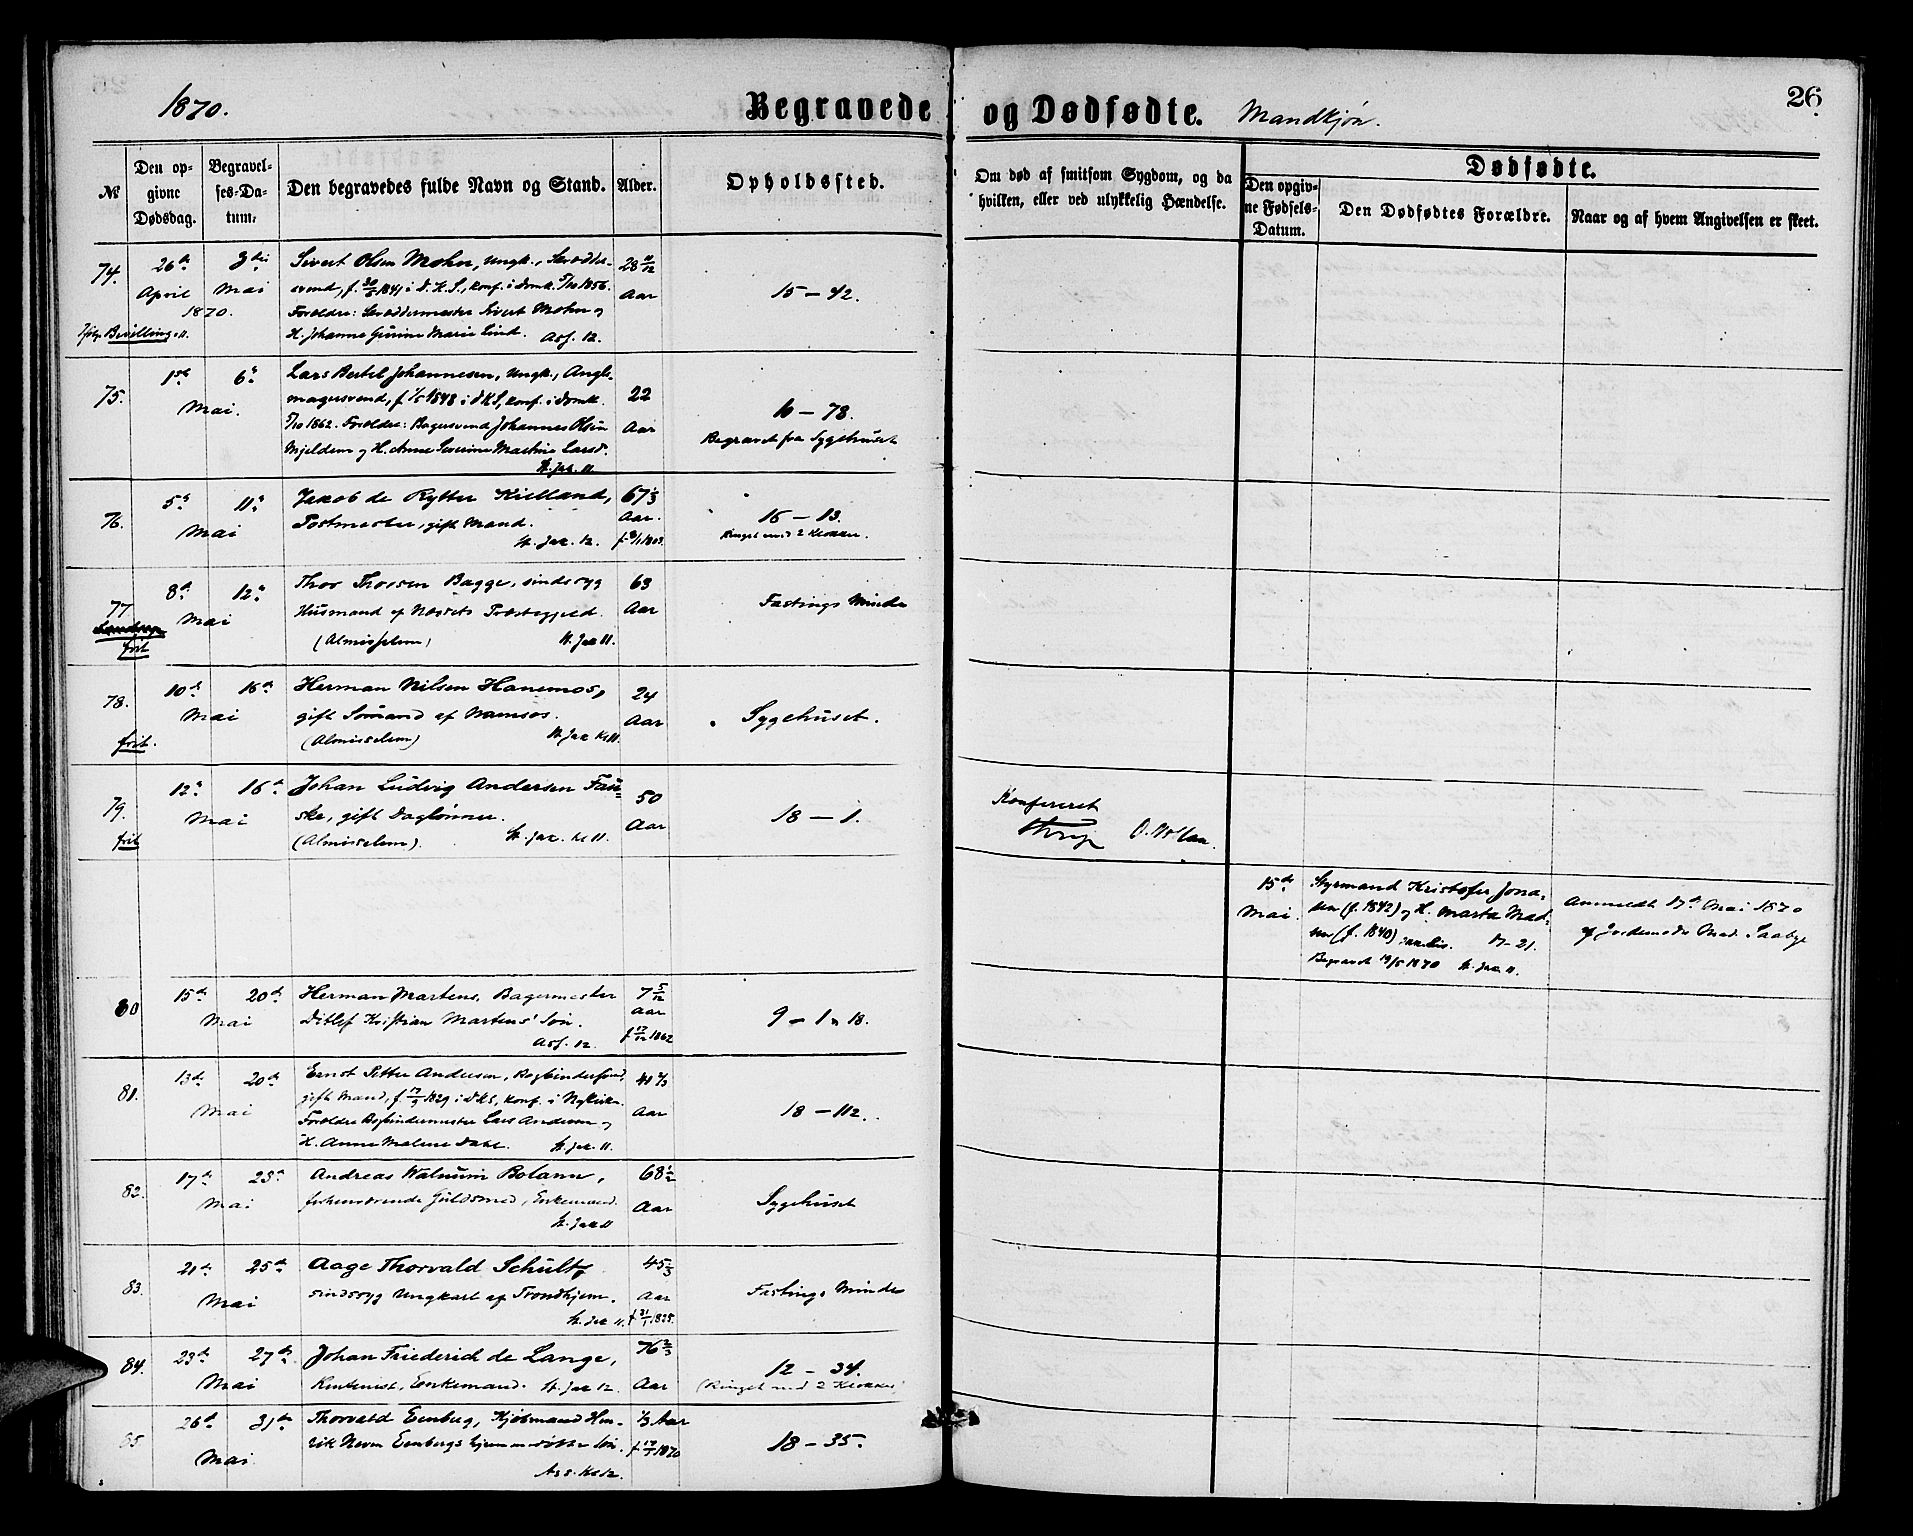 1870.
Begravede og Dødfødte. Mandkjøn.
26
№
Den opgivne Dødsdag.
Begravelses-Datum.
Den begravedes fulde Navn og Stand.
Alder.
Opholdssted.
Om død af smitsom Sygdom, og da hvilken, eller ved ulykkelig Hændelse.
Dødfødte.
Den opgivne Fødsels-Datum.
Den Dødfødtes Forældre.
Naar og af hvem Angivelsen er skeet.
74. 26de April 3die Mai 1870.
Bevilling
Sivert Olsen Mohn, Ungk., Skrædder-
svend, f. 1841 i D.K.S., konf. i Domk. 5/10 1856.
Forældre: Skræddermester Sivert Mohn og
H. Johanne Gurine Marie Lind. Ass. 12.
28 11/12 Aar
15 – 42.
75. 1ste 6te Mai.
Lars Bertel Johannesen, Ungk.,
magersvend, f. 1/5 1848 i DKS, konf. i Domk.
5/10 1862. Forældre: Bagersvend Johannes Olsen
Mjeldem og H. Anne Severine Martine Larsd.
St. Jak. 11.
22 Aar
10 – 78.
Begravet fra Sygehuset
76. 5te 11te Mai
Jakob de Rytter Kielland,
Postmester, gift Mand.
St. Jak. 12.
67 1/3 Aar.
16 – 13.
Ringet med 2 Klokker.
77 frit 8de 12te Mai
Thor Thorsen Bagge, sindssyg
Husmand af Næssets Præstegjeld.
(Almisselem) St. Jak 11.
63 Aar
Fastings Minde
78. frit. 10de 16de Mai
Herman Nilsen Hanemos,
gift Sømand af Namsos.
(Almisselem) St. Jak Kl 11.
24 Aar
Sygehuset.
79. frit 12te 16de Mai
Johan Ludvig Andersen Fau-
ske, gift Daglønner.
(Almisselem). St. Jak. Kl 11.
50 Aar
18 – 1.
Konfereret
15de Mai.
Styrmand Kristofer Jona-
sen (f. 1842) og H. Marta Mad-
sen (f. 1840) 17-21.
Begravet 19/5 1870 St. Jak 11.
Anmeldt 17de Mai 1870
af Jordemoder Mad. Saabye
80 15de 20de Mai
Herman Martens, Bagermester
Ditlef Kristian Martens' Søn.
Ass. 12.
7 5/12 Aar
f. 17/12 1862
9 – 1 18.
81. 13de 20de Mai
Ernst Petter Andersen, Bogbindersvend,
gift Mand, f. 17/9 1829 i DKS, konf. i Nykirk.
Forældre Bogbindermester Lars Andersen og
H. Anne Malene Dahl. St. Jak 11.
40 2/3 Aar
18 – 112.
82. 17de 23de Mai
Andreas Walnum Bolann,
forhenværende Guldsmed, Enkemand.
St. Jak 11
68 1/2 Aar
Sygehuset
83. 21de 25de Mai
Aage Thorvald Schultz
sindssyg Ungkarl af Trondhjem.
St. Jak 11.
45 1/3 Aar
f. 31/1 1825.
Fastings Minde
84. 23de 27de Mai
Johan Friederich de Lange,
Rentenist, Enkemand. St. Jak 12.
76 2/3 Aar
12 – 34.
(Ringet med 2 Klokker)
85 26de 31te Mai
Thorvald Eenberg, Kjøbmand Hen-
rik Eenbergs hjemmedøbte Søn.
Ass. Kl 12.
1/3 Aar
18 – 35.